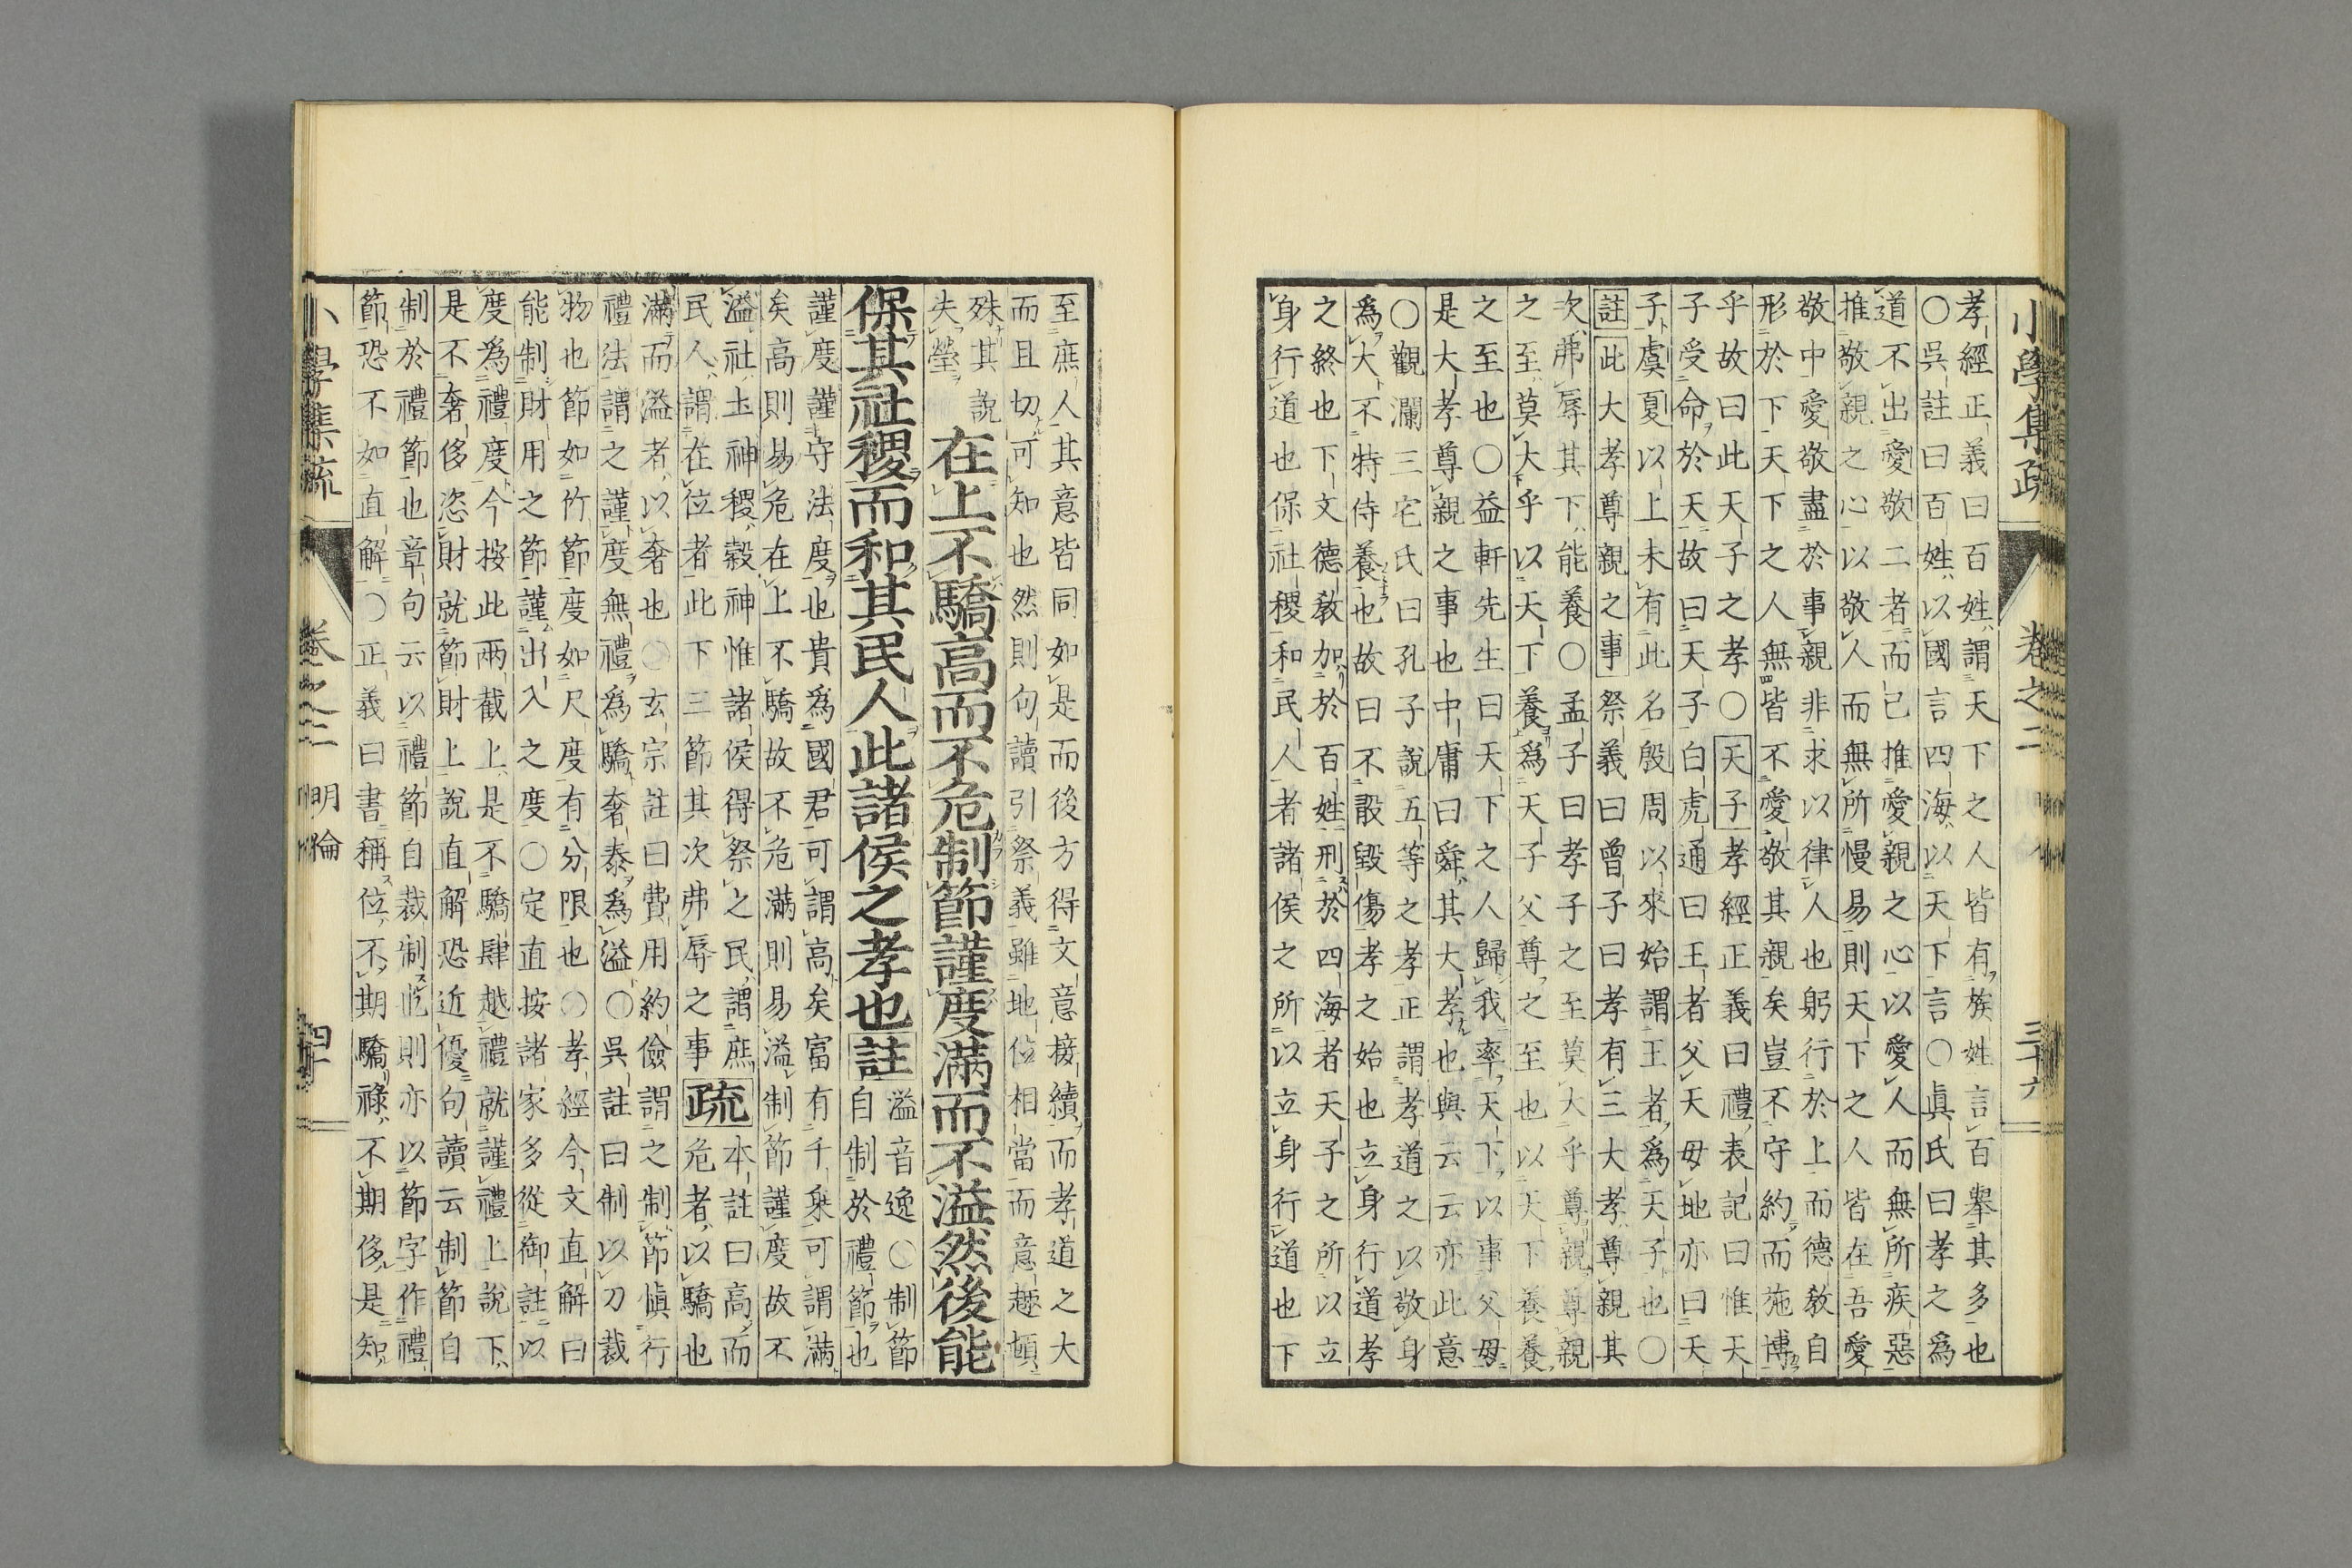 小學集疏 卷之二 三十六
孝經正義曰百姓謂天下之人皆有族姓言百擧其多也
〇吳註曰百姓以國言四海以天下言〇眞氏曰孝之爲
道不出愛敬二者而已推愛親之心以愛人而無所疾惡
推敬親之心以敬人而無所慢易則天下之人皆在吾愛
敬中愛敬盡於事親非求以律人也躬行於上而德敎自
形於下天下之人無皆不愛敬其親矣豈不守約而施博
乎故曰此天子之孝〇天子孝經正義曰禮表記曰惟天
子受命於天故曰天子白虎通曰王者父天母地亦曰天
子虞夏以上未有此名殷周以來始謂王者爲天子也〇
註此大孝尊親之事祭義曰曾子曰孝有三大孝尊親其
次弗辱其下能養〇孟子曰孝子之至莫大乎尊親尊親
之至莫大乎以天下養爲天子父尊之至也以天下養養
之至也〇益軒先生曰天下之人歸我率天下以事父母
是大孝尊親之事也中庸曰舜其大孝也與云云亦此意
〇觀瀾三宅氏曰孔子說五等之孝正謂孝道之以敬身
爲大不特侍養也故曰不敢毀傷孝之始也立身行道孝
之終也下文德敎加於百姓刑於四海者天子之所以立
身行道也保社稷和民人者諸侯之所以立身行道也下
至庶人其意皆同如是而後方得文意接續而孝道之大
而且切可知也然則句讀引祭義雖地位相當而意趣頓
殊其說
失瑩
在上不驕高而不危制節謹度滿而不溢然後能
保其社稷而和其民人此諸侯之孝也註
溢音逸〇制節
自制於禮節也
謹度謹守法度也貴爲國君可謂高矣富有千乗可謂滿
矣高則易危在上不驕故不危滿則易溢制節謹度故不
溢社土神稷穀神惟諸侯得祭之民謂庶
民人謂在位者此下三節其次弗辱之事疏
本註曰高而
危者以驕也
滿而溢者以奢也〇玄宗註曰費用約儉謂之制節愼行
禮法謂之謹度無禮爲驕奢泰爲溢〇吳註曰制以刀裁
物也節如竹節度如尺度有分限也〇孝經今文直解曰
能制財用之節謹出入之度〇定直按諸家多從御註以
度爲禮度今按此兩截上是不驕肆越禮就謹禮上說下
是不奢侈恣財就節財上說直解恐近優句讀云制節自
制於禮節也章句云以禮節自裁制此則亦以節字作禮
節恐不如直解〇正義曰書稱位不期驕祿不期侈是知
小學集疏 卷之二 明倫 四十